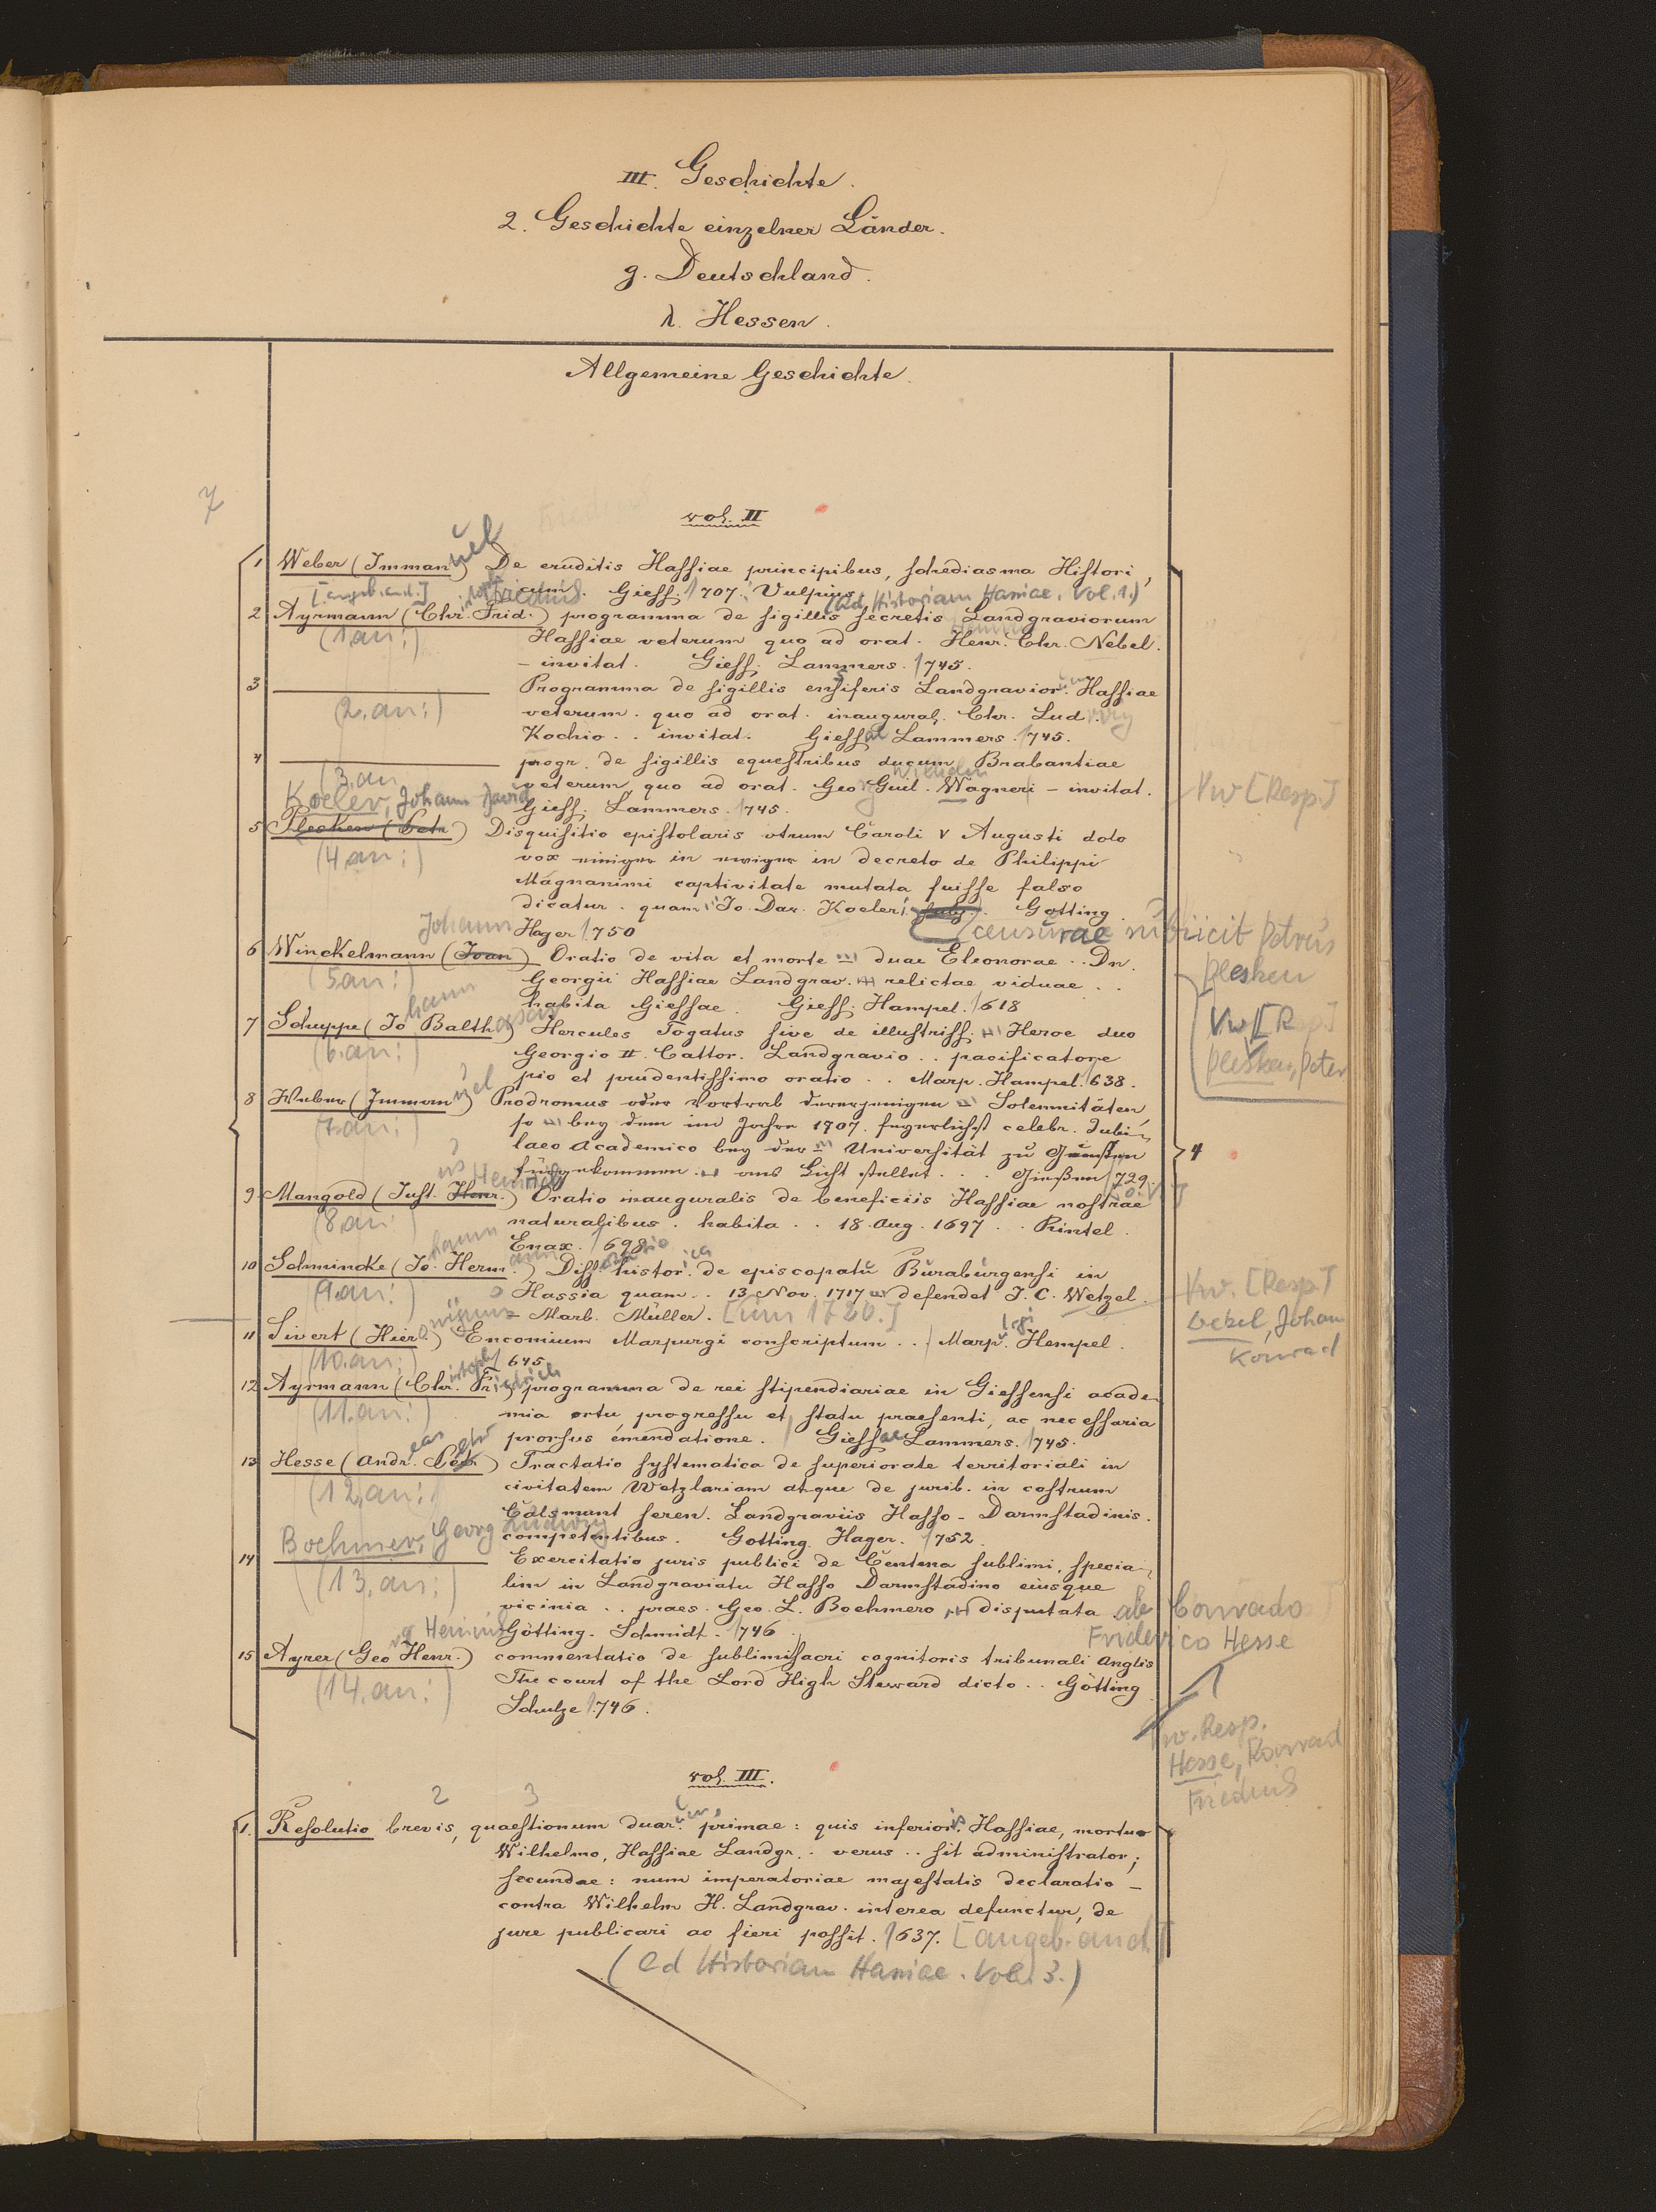 III. Geschichte.
2. Geschichte einzelner Länder.
g. Deutschland.
λ. Hessen.
Allgemeine Geschichte.
7
vol. II
1 Weber (Immanuel) De eruditis Hassiae principibus, schediasma Histori,
[angeb. and.] cum. Giess. 1707. Vulpius
(Ad Historiam Haniae. Vol. 1.)
2 Ayrmann (Chr. Frid.) programma de sigillis secretis Landgraviorum
(1. an:) Hassiae veterum quo ad orat. Henr. Chr. Nebel.
– invitat. Giess. Lammers. 1745.
3 Programma de sigillis ensiferis Landgravior. Hassiae
(2. an:) veterum. quo ad orat. inaugural. Chr. Ludwig
Kochio .. invitat. Giessae Lammers. 1745.
4 progr. de sigillis equestribus ducum Brabantiae
(3. an veterum quo ad orat. Georg Guil. Wagneri – invitat.
Koeler, Johann David Giess. Lammers. 1745.
Vw [Resp.]
5 Plesken (Petr.) Disquisitio epistolaris utrum Caroli V Augusti dolo
(4. an:) vox einiger in ewiger in decreto de Philippi
Magnanimi captivitate mutata fuisse falso
dicatur. quam Jo. Dav. Koeleri subj. Gotting.
Hager 1750
censurae subiicit Petrus
Plesken
Vw [Resp.]
Plesken, Peter
6 Winckelmann (Joan) Johann Oratio de vita et morte duae Eleonorae .. Dn.
(5. an:) Georgii Hassiae Landgrav. relictae viduae ..
habita Giessae. Giess. Hampel. 1618
7 Schuppe (Johann Balthasar) Hercules Togatus sive de illustriss. Heroe duo
(6. an:) Georgio II. Cattor. Landgravio .. pacificatore
pio et prudentissimo oratio .. Marp. Hampel. 1638.
8 Weber (Immanuel) Prodromus oder Vortrab dererjenigen Solennitäten,
(7. an:) so bey dem im Jahre 1707. feyerlichst celebr. Jubi,
laeo Academico bey der Universität zu Giessen
fürgekommen .. ans Licht stellet .. Gießen 1729.
4
9 Mangold (Just. Henr.) Heinrich Oratio inauguralis de beneficiis Hassiae nostrae
(8. an: naturalibus. habita .. 18. Aug. 1697 .. Rintel.
Enax. 1698
10 Schmincke (Johann Hermann) Diss. histor. de episcopatu Buraburgensi in
(9. an:) Hassia quam .. 13 Nov. 1717 defendet J. C. Wetzel.
Marb. Müller. [um 1720.]
Vw. [Resp.]
Wetzel, Johann
Konrad
11 Sivert (Hieronymus) Encomium Marpurgi conscriptum .. Marpurgi Hempel.
(10. an:) 1645
12 Ayrmann (Christoph Friedrich) programma de rei stipendiariae in Giessensi acade
(11. an:) mia ortu, progressu et statu praesenti, ac necessaria
prorsus emendatione. Giessae Lammers. 1745.
13 Hesse (Andreas Petr.) Tractatio systematica de superiorate territoriali in
(12. an: civitatem Wetzlariam atque de jurib. in castrum
Calsmunt seren. Landgraviis Hasso-Darmstadinis.
competentibus. Gotting. Hager. 1752.
Boehmer, Georg Ludwig
14 Exercitatio juris publici de Centena sublimi, specia,
(13. an:) lim in Landgraviatu Hasso Darmstadino eiusque
vicinia .. praes. Geo. L. Boehmero disputata ab Conrado
Götting. Schmidt. 1746. Friderico Hesse
15 Ayrer (Georg Henr.) commentatio de sublimi sacri cognitoris tribunali Anglis
(14. an:) The court of the Lord High Steward dicto .. Götting
Schulze 1746.
Vw. Resp.
Hesse, Konrad
Friedrich
vol. III.
2 3
1. Resolutio brevis, quaestionum duarum, primae: quis inferioris Hassiae, mortuo
Wilhelmo, Hassiae Landgr. .. verus .. sit administrator;
secundae: num imperatoriae majestatis declaratio –
contra Wilhelm H. Landgrav. interea defunctum, de
jure publicari ac fieri possit. 1637. [angeb. and.]
(Ad Historiam Haniae. Vol. 3.)